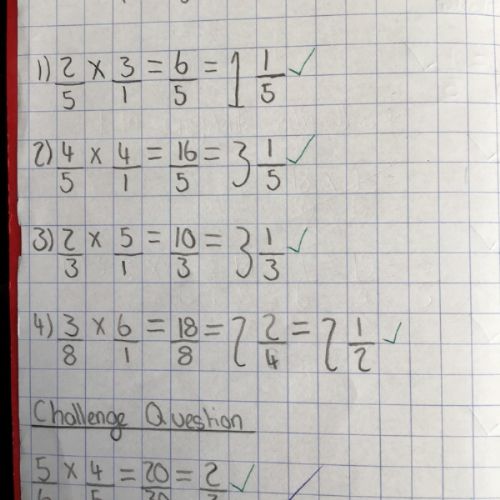 1) 2/5 × 3/1 = 6/5 = 1 1/5 ✓
2) 4/5 × 4/1 = 16/5 = 3 1/5 ✓
3) 2/3 × 5/1 = 10/3 = 3 1/3 ✓
4) 3/8 × 6/1 = 18/8 = 2 2/4 = 2 1/2 ✓
Challenge Question
5/6 × 4/5 = 20/30 = 2/3 ✓